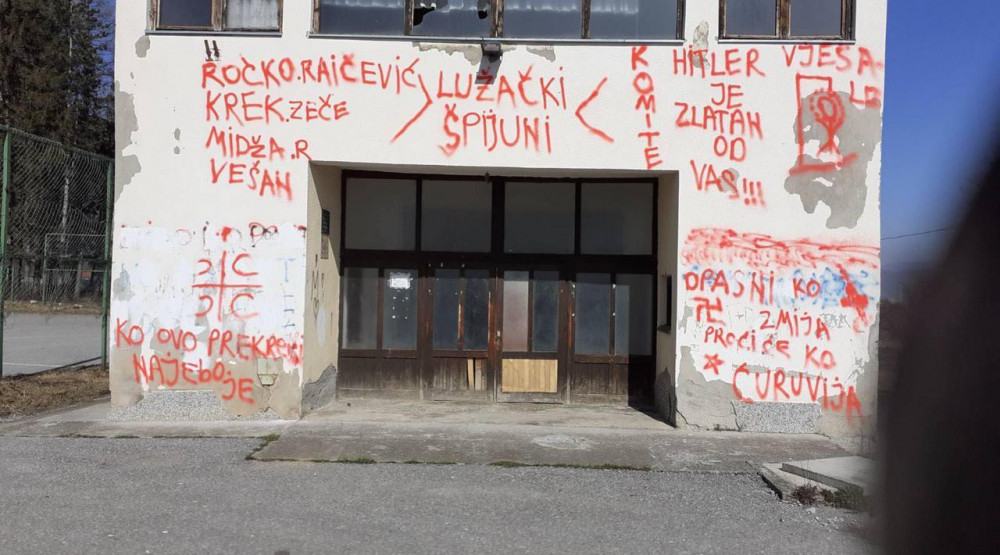 ROČKO.RAIČEVIĆ
KREK.ZEČE
MIDŽA.R
VEŠAN
LUŽAČKI
ŠPIJUNI
KOMITE
HITLER
JE
ZLATAN
OD
VAS!!!
VJEŠA-
LE
KO OVO PREKRECI
NAJEBOJE
OPASNI KO
ZMIJA
PROĆIĆE KO
ĆURUVIJA